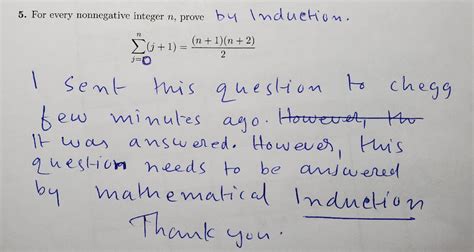 5. For every nonnegative integer n, prove by Induction.
n
∑(j + 1) = (n + 1)(n + 2) / 2
j=0
I sent this question to chegg
few minutes ago. However, th
It was answered. However, this
question needs to be answered
by mathematical Induction
Thank you.